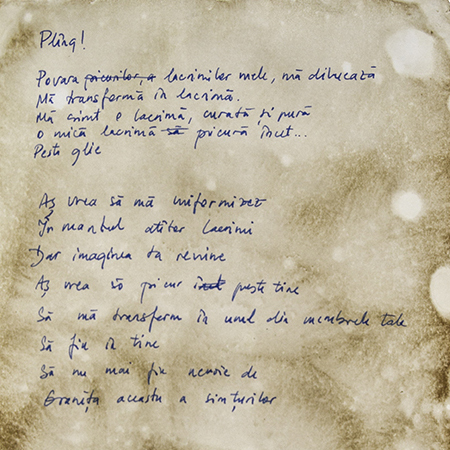 Plîng!
Povara picurilor, a lacrimilor mele, mă diluează
Mă transformă în lacrimă.
Mă simt o lacrimă, curată și pură
O mică lacrimă să picură încet...
Peste glie
Aș vrea să mă uniformizez
În mantul atîtor lacrimi
Dar imaginea ta revine
Aș vrea să picur încet peste tine
Să mă transform în unul din membrele tale
Să fiu în tine
Să nu mai fiu nevoie de
Granița aceasta a simțurilor